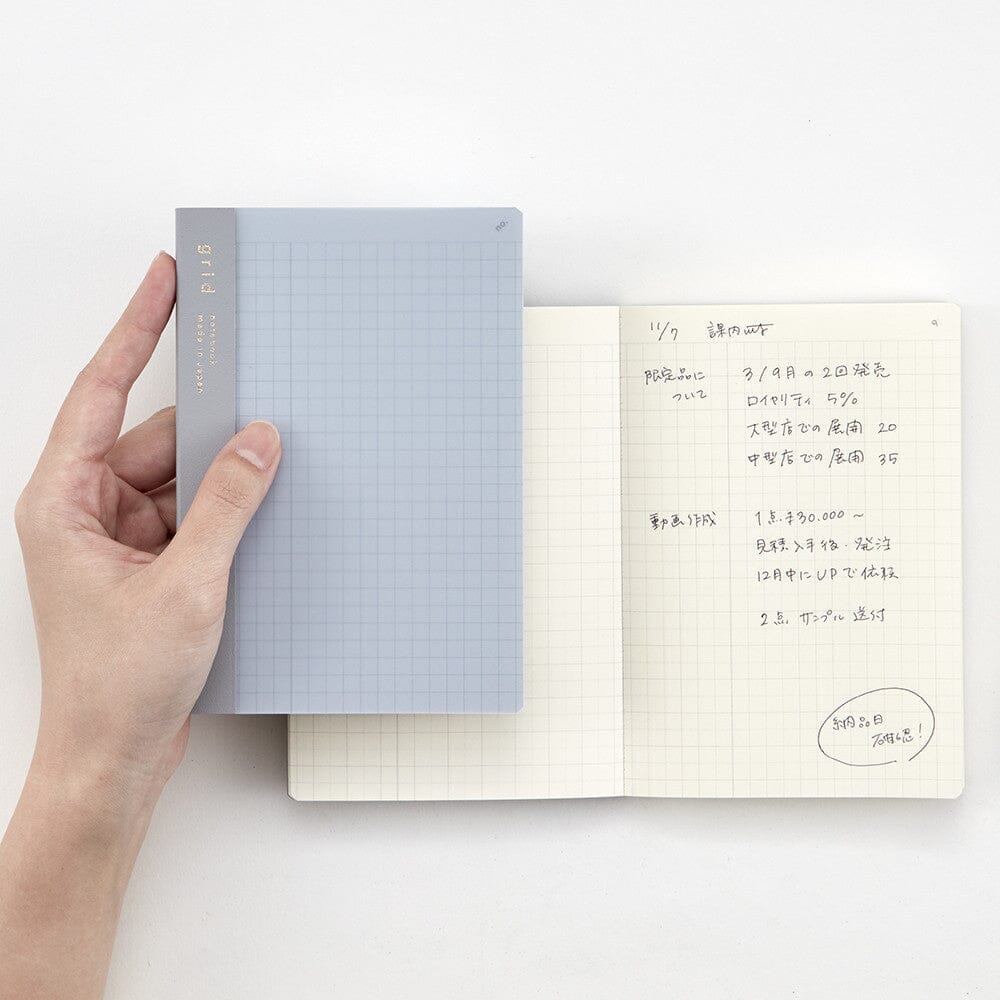 grid
notebook
made in Japan
no.
11/7 課内mtg
9
限定品に
ついて
3/9月の2回発売
ロイヤリティ 5%
大型店での展開 20
中型店での展開 35
動画作成
1点¥30.000～
見積入手後・発注
12月中にUPで依頼
2点 サンプル送付
納品日
確認!